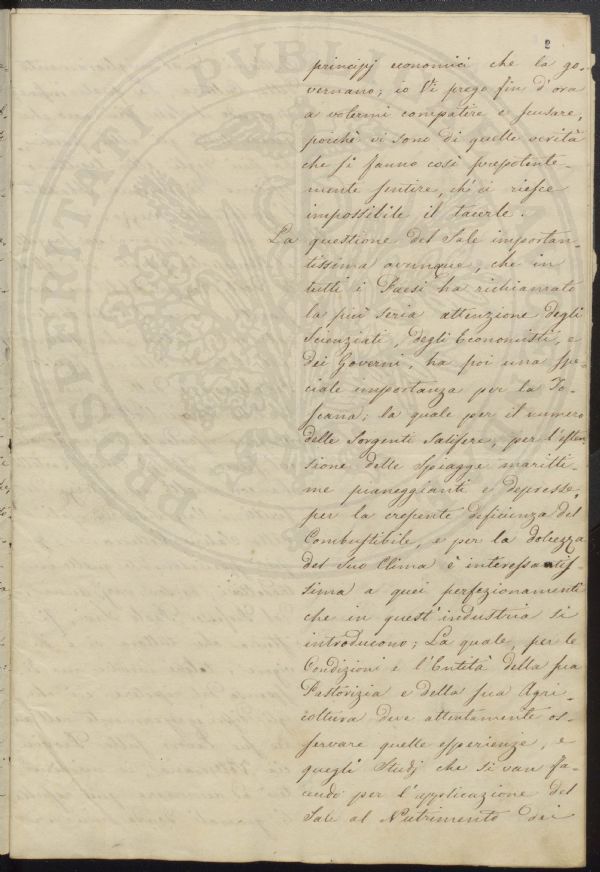 2
principj economici che la go-
vernano; io Vi prego fin d'ora
a volermi compatire e scusare,
poichè vi sono di quelle verità
che si fanno così prepotente-
mente sentire, ch'ci riesce
impossibile il tacerle.
La questione del Sale importan-
tissima ovunque, che in
tutti i Paesi ha richiamato
la più seria attenzione degli
Scienziati, degli Economisti, e
dei Governi, ha poi una spe-
ciale importanza per la To-
scana; la quale per il numero
delle Sorgenti Salifere, per l'esten
sione delle Spiagge maritti-
me pianeggianti e depresse,
per la crescente deficienza del
Combustibile, e per la dolcezza
del suo Clima è interessantis-
sima a quei perfezionamenti
che in quest'industria si
introducono; La quale, per le
Condizioni e l'Entità della sua
Pastorizia e della sua Agri-
coltura deve attentamente os-
servare quelle esperienze, e
quegli Studj che si van fa-
cendo per l'applicazione del
Sale al Nutrimento dei
PROSPERITATI PUBLI